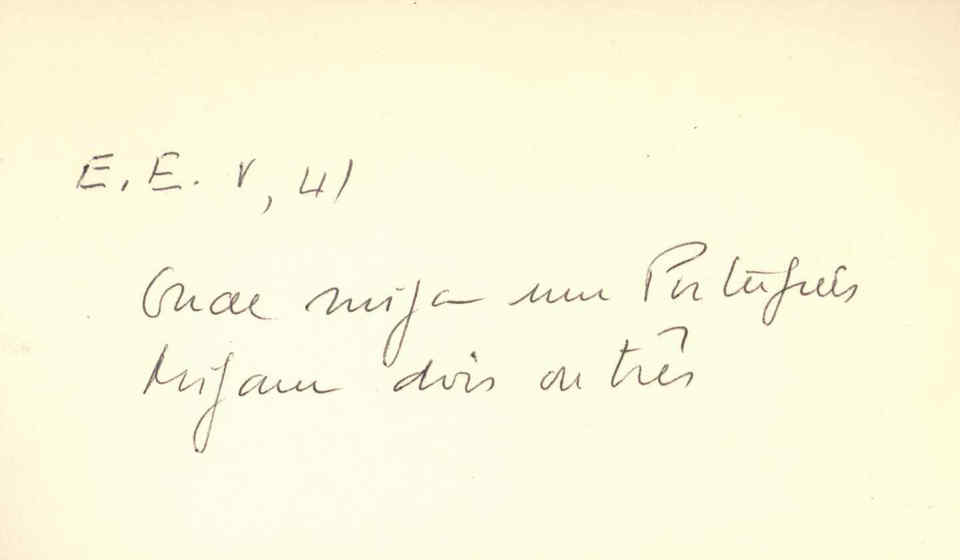 E. E. V, 41
Onde mija um Português
Mijam dois ou três